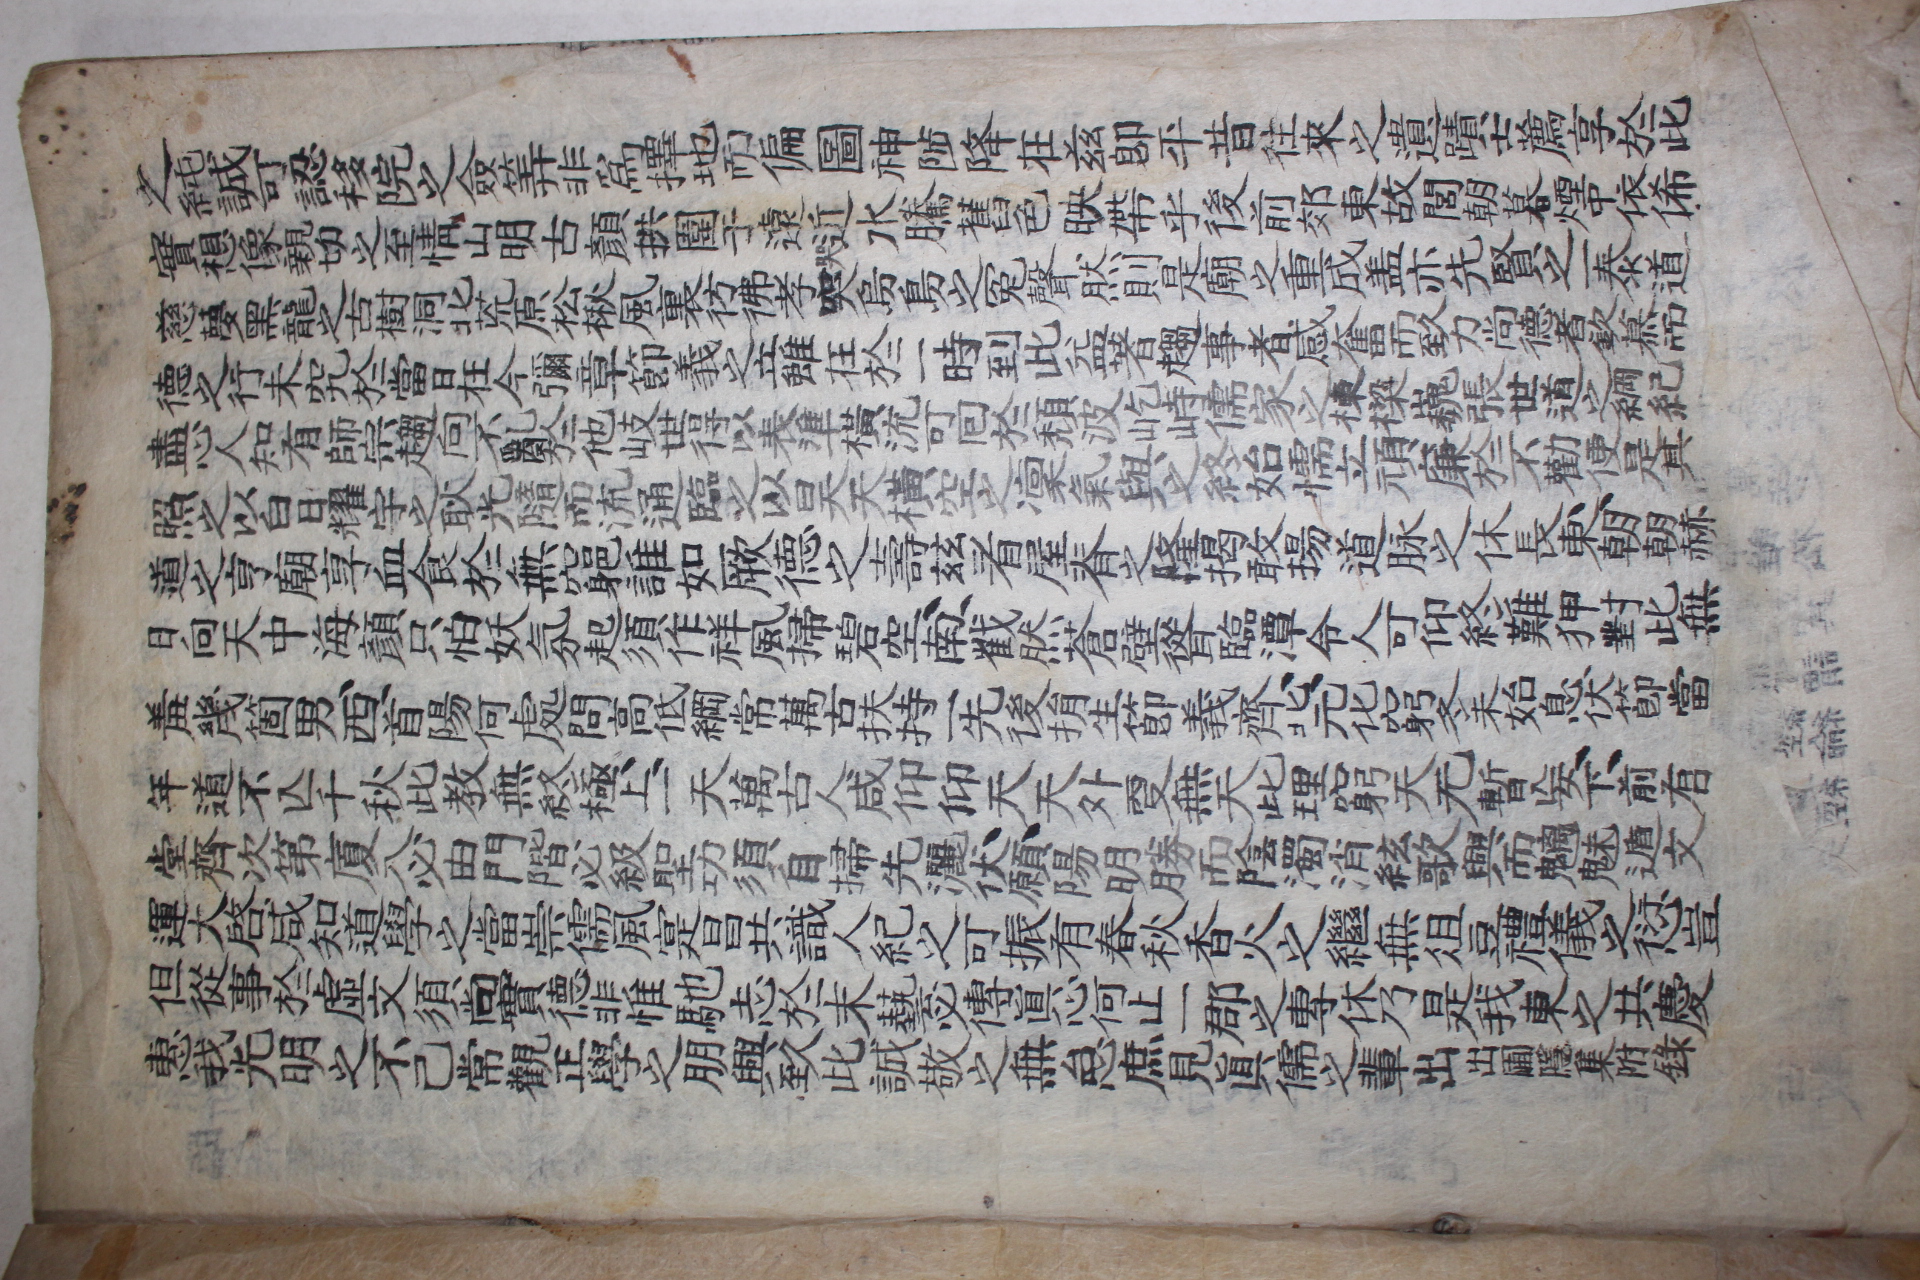 之純誠可認移院之僉筭非爲擇地而偏圖神陟降在玆卽平昔往來之遺蹟士薦享於此
實想像親切之至情山明古顔拱圍于遠近水騰舊色映帶乎後前郊東故閭朝暮煙中依俙
慈夢黑龍之古樹洞北荒原松楸風裏彷彿孝哭烏鳥之寃聲然則是廟之重成盖亦先賢之一泰道
德之行未究於當日在今彌章節義之立雖在於一時到此益著趨事者感奮而致力尚德者欽慕而
盡心人知有師宗趨向不亂於他岐世得以表準橫流可囘於頹波屹峙儒家之棟樑巍張世道之綱紀
照之以白日耀宇之耿光隨而流通臨之以旻天天橫空之凜氣與之終始懦立頑廉於不勸便是其
道之亨廟享血食於無窮誰如厥德之壽玆者屋脊之隆揭敢揚道脉之休長東朝朝赫
日向天中海顔只怕妖氛起須作祥風掃碧空南巀然蒼壁聳臨潭令人可仰終難狎對此無
羞幾箇男西首陽何處問高低綱常萬古扶持一先後捐生節義齊北元化窮冬未始息伏節當
年道不亾千秋此教無終極上一天萬古人咸仰仰天天外更無天此理窮天无暫亾妄下前有
堂齊次第廈入必由門階必級聖功須自掃先灑伏願陽明勝而陰濁消絃歌興而魑魅遁文
運大啓咸知道學之當崇儒風寔昌共識人紀之可振有春秋香火之繼無俎豆禮儀之愆豈
但從事於虛文須尚實德非惟馳志於末藝必傳眞心何止一郡之專休乃是我東之共慶
惠我光明之不已常觀正學之朋興致此誠敬之無怠庶見眞儒之輩出 出圃隱集附錄